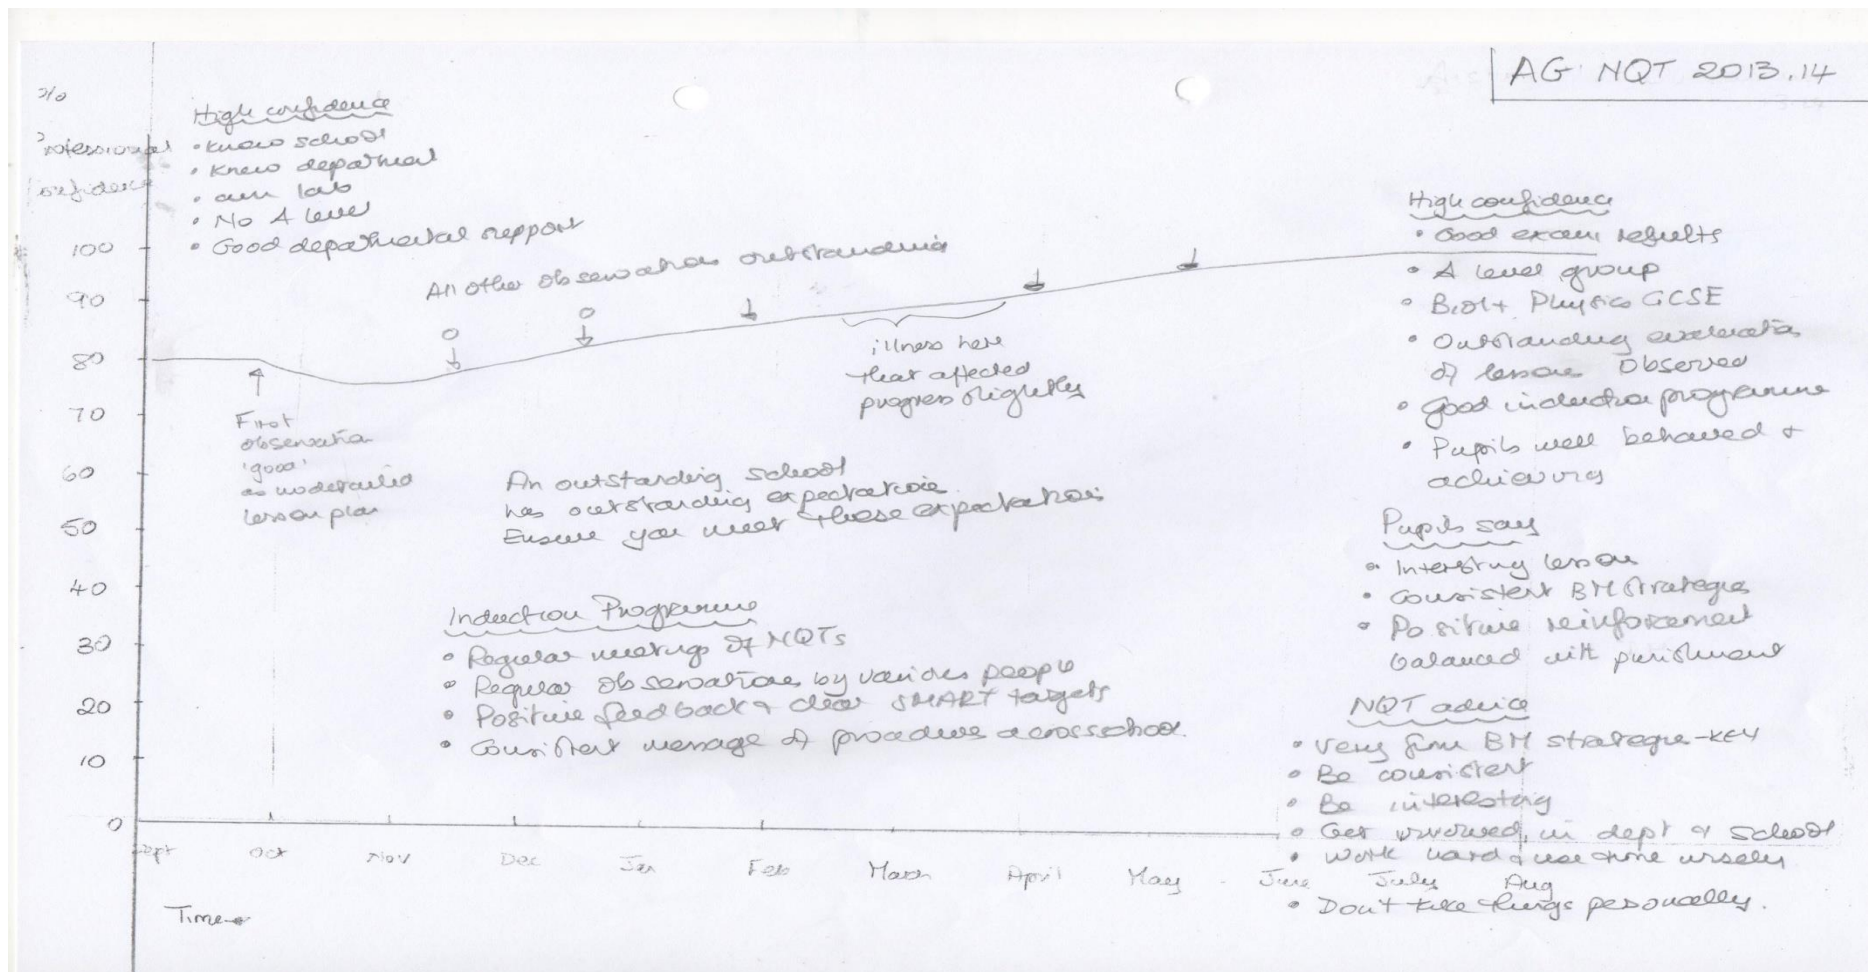 AG NQT 2013.14
%
Professional
confidence
High confidence
• Know school
• Know department
• own lab
• No A level
• Good departmental support
All other observations outstanding
100
90
80
70
60
50
40
30
20
10
0
O
O
First
observation
'good'
as no detailed
lesson plan
illness here
that affected
progress slightly
An outstanding school
has outstanding expectations.
Ensure you meet these expectations
Induction Programme
• Regular meetings of NQTs
• Regular observations by various people
• Positive feedback & clear SMART targets
• Consistent message of procedures across school.
High confidence
• Good exam results
• A level group
• Biol + Physics GCSE
• Outstanding evaluation
of lessons observed
• Good induction programme
• Pupils well behaved &
achieving
Pupils say
• Interesting lesson
• Consistent BM strategies
• Positive reinforcement
balanced with punishment
NQT advice
• Very firm BM strategies - KEY
• Be consistent
• Be interesting
• Get involved, in dept & school
• Work hard & use time wisely
• Don't take things personally.
Sept Oct Nov Dec Jan Feb March April May June July Aug
Time